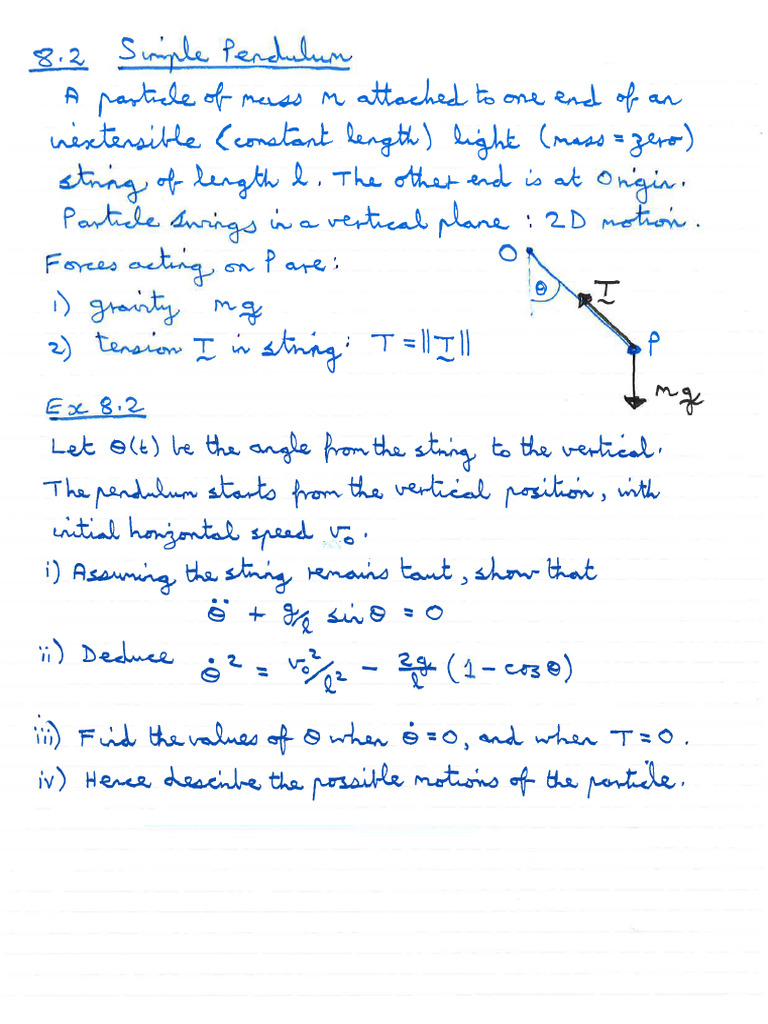 8.2 Simple Pendulum
A particle of mass m attached to one end of an
inextensible (constant length) light (mass = zero)
string of length l. The other end is at Origin.
Particle swings in a vertical plane : 2D motion.
Forces acting on P are:
1) gravity mg
2) tension T in string: T = ||T||
O
θ
T
P
mg
Ex 8.2
Let θ(t) be the angle from the string to the vertical.
The pendulum starts from the vertical position, with
initial horizontal speed v₀.
i) Assuming the string remains taut, show that
θ̈ + g/l sin θ = 0
ii) Deduce θ̇² = v₀²/l² - 2g/l (1 - cos θ)
iii) Find the values of θ when θ̇ = 0, and when T = 0.
iv) Hence describe the possible motions of the particle.